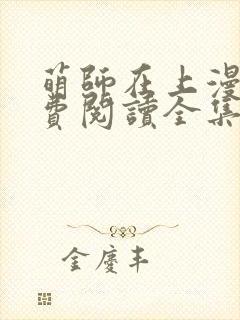 萌師在上漫
費閱讀全集
金慶丰